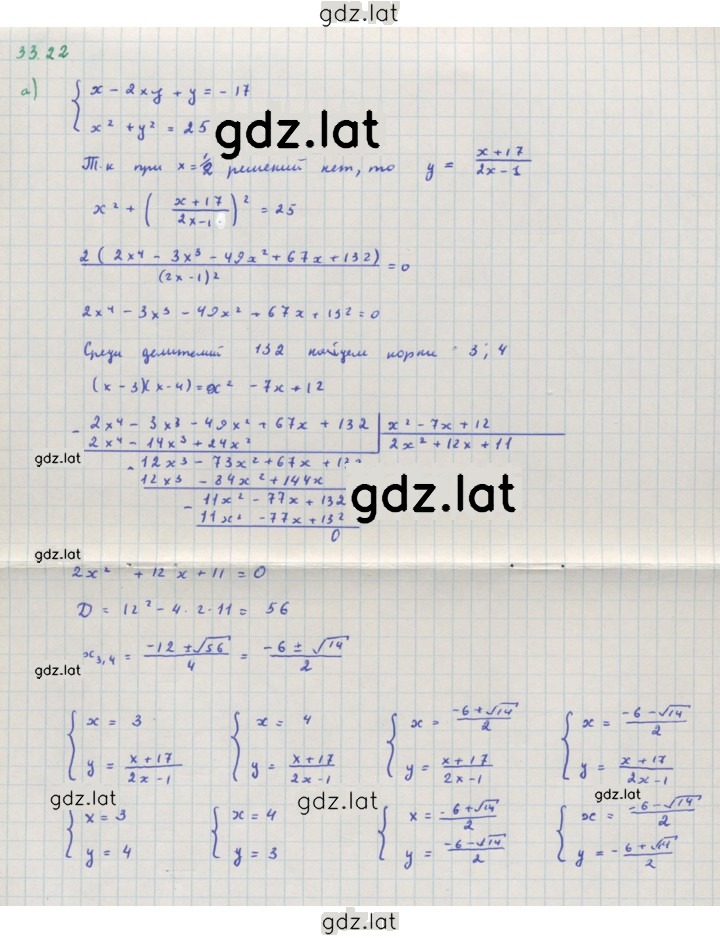 gdz.lat
33.22
а) { x - 2xy + y = -17
x² + y² = 25
gdz.lat
Т.к при x = 1/2 решений нет, то y = (x+17)/(2x-1)
x² + ((x+17)/(2x-1))² = 25
2(2x⁴ - 3x³ - 49x² + 67x + 132)/(2x-1)² = 0
2x⁴ - 3x³ - 49x² + 67x + 132 = 0
Среди делителей 132 найдем корни 3; 4
(x-3)(x-4) = x² - 7x + 12
- 2x⁴ - 3x³ - 49x² + 67x + 132 | x² - 7x + 12
2x⁴ - 14x³ + 24x² | 2x² + 12x + 11
gdz.lat
- 12x³ - 73x² + 67x + 132
12x³ - 84x² + 144x
gdz.lat
- 11x² - 77x + 132
11x² - 77x + 132
0
gdz.lat
2x² + 12x + 11 = 0
D = 12² - 4·2·11 = 56
x₃,₄ = (-12 ± √56)/4 = (-6 ± √14)/2
gdz.lat
{ x = 3 { x = 4 { x = (-6+√14)/2 { x = (-6-√14)/2
y = (x+17)/(2x-1) y = (x+17)/(2x-1) y = (x+17)/(2x-1) y = (x+17)/(2x-1)
gdz.lat gdz.lat gdz.lat
{ x = 3 { x = 4 { x = (-6+√14)/2 { x = (-6-√14)/2
y = 4 y = 3 y = (-6-√14)/2 y = (-6+√14)/2
gdz.lat